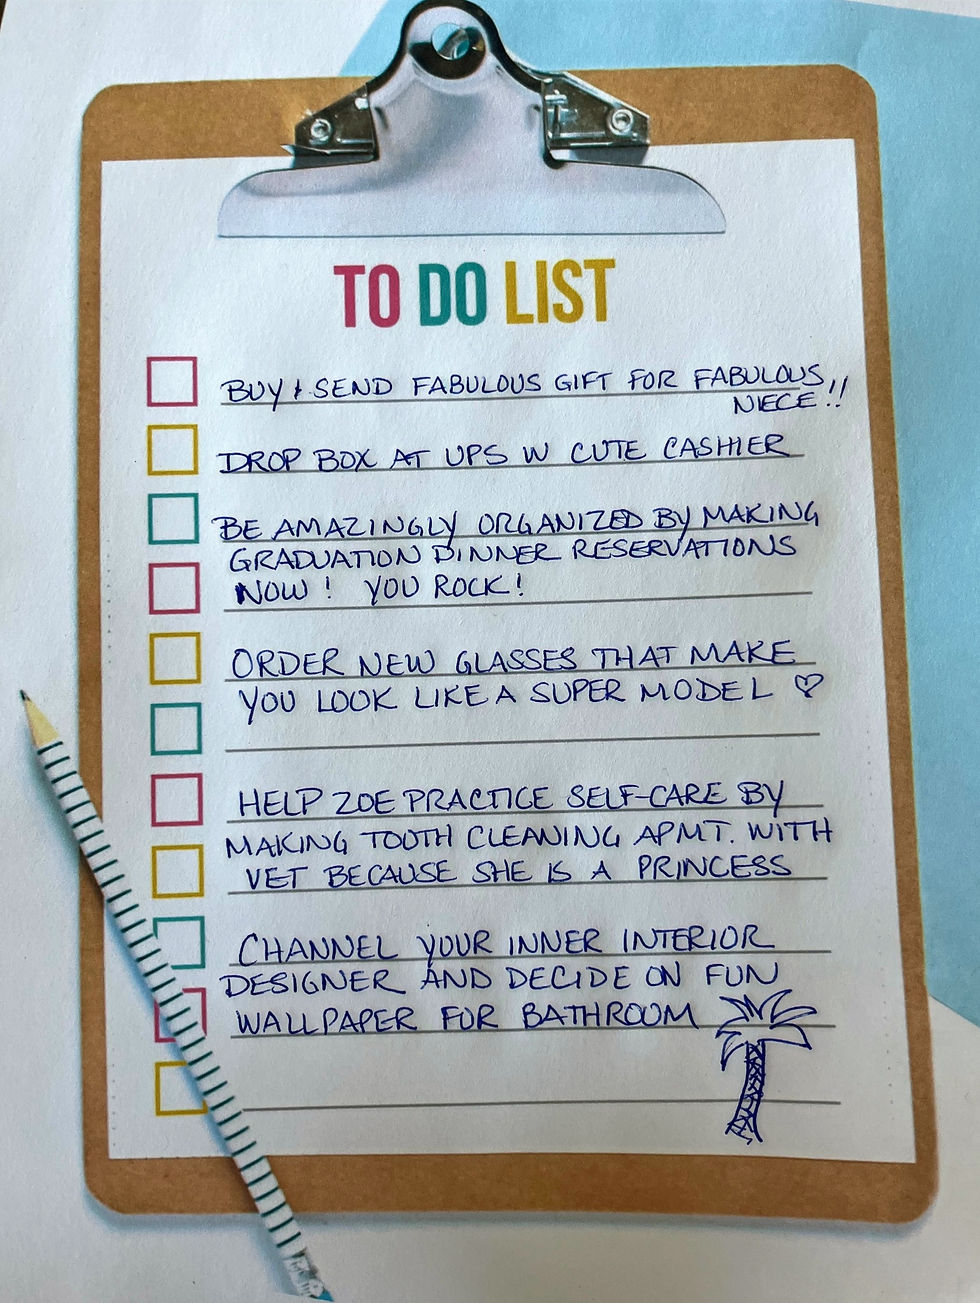 TO DO LIST
BUY & SEND FABULOUS GIFT FOR FABULOUS
NIECE!!
DROP BOX AT UPS W CUTE CASHIER
BE AMAZINGLY ORGANIZED BY MAKING
GRADUATION DINNER RESERVATIONS
NOW! YOU ROCK!
ORDER NEW GLASSES THAT MAKE
YOU LOOK LIKE A SUPER MODEL ♡
HELP ZOE PRACTICE SELF-CARE BY
MAKING TOOTH CLEANING APMT. WITH
VET BECAUSE SHE IS A PRINCESS
CHANNEL YOUR INNER INTERIOR
DESIGNER AND DECIDE ON FUN
WALLPAPER FOR BATHROOM